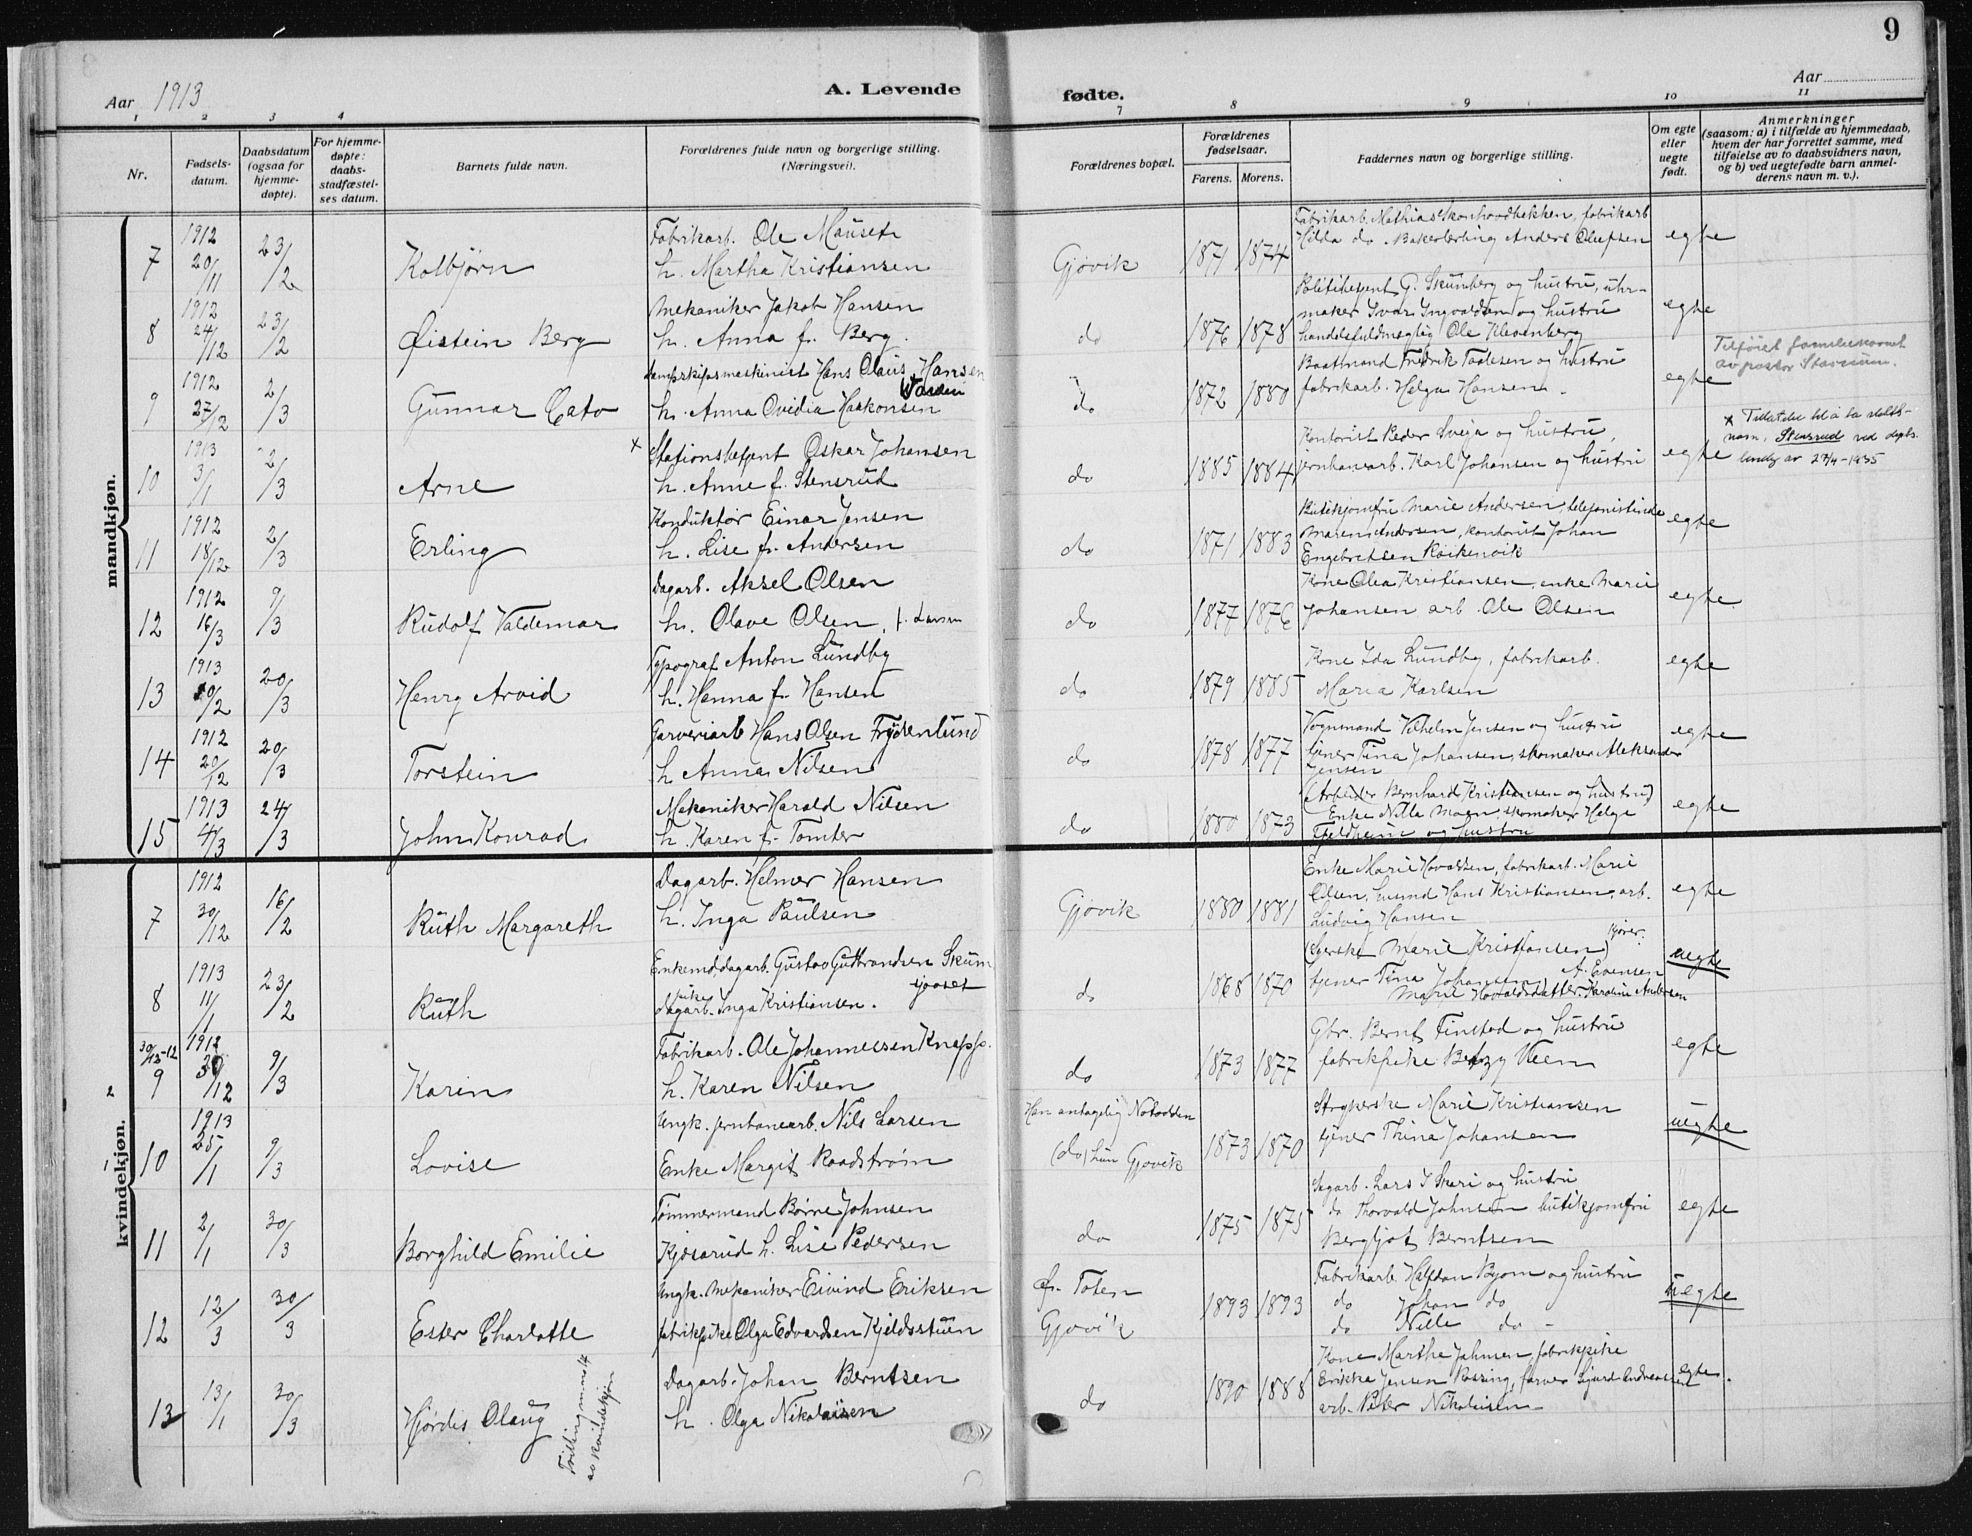 9
Aar 1913
A. Levende
fødte.
Aar
1 2 3 4 7 8 9 10 11
Nr.
Fødsels-
datum.
Daabsdatum
(ogsaa for
hjemme-
døpte).
For hjemme-
døpte:
daabs-
stadfæstel-
ses datum.
Barnets fulde navn.
Forældrenes fulde navn og borgerlige stilling.
(Næringsvei).
Forældrenes bopæl.
Forældrenes
fødselsaar.
Farens. Morens.
Faddernes navn og borgerlige stilling.
Om egte
eller
uegte
født.
Anmerkninger
(saasom: a) i tilfælde av hjemmedaab,
hvem der har forrettet samme, med
tilføielse av to daabsvidners navn,
og b) ved uegtefødte barn anmel-
derens navn m. v.).
mandkjøn.
7 1912 20/11 23/2 Kolbjørn
Fabrikarb. Ole Mauset
h. Martha Kristiansen
Gjøvik 1871 1874
Fabrikarb. Mathias Skonhoodbekken, fabrikarb
Hilda do. Bakerlerling Anders Olufsen
egte
8 1912 24/12 23/2 Øistein Berg
Mekaniker Jakob Hansen
h. Anna f. Berg.
do 1876 1878
Politibetjent G. Skumberg og hustru, uhr-
maker Ivar Ingvaldsen og hustru
handelsfuldmegtig Ole Klevenberg
egte
9 1912 27/12 2/3 Gunnar Cato
Dampskipsmaskinist Hans Olaus Hansen
h. Anna Ovidia Haakonsen
do 1872 1880
Baatmand Fredrik Paulsen og hustru
fabrikarb. Helga Hansen.
egte
Tilføiet familienavnet
av pastor
10 1913 3/1 2/3 Arne
x Stationsbetjent Oskar Johansen
h. Anne f. Stensrud
do 1885 1884
Kontorist Peder Sveja og hustru,
jernbanearb. Karl Johansen og hustru
egte
x Tilladelse til å ta slekts-
navn, Stensrud ved
27/4-1935
11 1912 18/12 2/3 Erling
Konduktør Einar Jensen
h. Lise f. Andersen
do 1871 1883
Butikjomfru Marie Andersen, telefonistinde
Maren Andersen, kontorist Johan
Engebretsen
egte
12 1912 16/3 9/3 Rudolf Valdemar
Dagarb. Aksel Olsen
h. Olave Olsen, f. Larsen
do 1877 1876
Kone Olea Kristiansen, enke Marie
Johansen arb. Ole Olsen
egte
13 1913 20/2 20/3 Henry Arvid
Typograf Anton Lundby
h. Hanna f. Hansen
do 1879 1885
Kone Ida Lundby, fabrikarb.
Maria Karlsen
egte
14 1912 20/12 20/3 Torstein
Garveriarb Hans Olsen Frydenlund
h Anna Nilsen
do 1878 1877
Vognmand Vilhelm Jensen og hustru
tjener Tina Johansen, skomaker Aleksander
Jensen
egte
15 1913 4/3 24/3 John Konrad
Mekaniker Harald Nilsen
h. Karen f. Tomter
do 1880 1873
(Arbeider Bernhard Kristiansen og hustru)
Enke Nille Moen, skomaker Helge
Fjeldheim og hustru
egte
kvindekjøn.
7 1912 30/12 16/2 Ruth Margareth
Dagarb. Helmer Hansen
h. Inga Paulsen
Gjøvik 1880 1881
Enke Marie Hovaldsen, fabrikarb. Marie
Olsen, husmd Hans Kristiansen, arb.
Ludvig Hansen
egte
8 1913 11/1 23/2 Ruth
Enkemd dagarb. Gustav Gudbrandsen Skum
pike
dagarb. Inga Kristiansen.
do 1868 1870
(Syerske Marie Kristiansen)
tjener Tina Johansen, A. Evensen
Marie Hovaldsdatter. Karoline Andersen
uegte
30/12-12
9 1912 30/12 9/3 Karin
Fabrikarb. Ole Johannessen Knapp.
h. Karen Nilsen
do 1873 1877
Gbr. Bernt Finstad og hustru
fabrikpike Betzy Veen
egte
10 1913 25/1 9/3 Lovise
Ungk. jernbanearb. Nils Larsen
Enke Margit Raadstrøm
Han antagelig Notodden
(do) hun Gjøvik
1873 1870
Strykerske Marie Kristiansen
tjener Thina Johansen
uegte
11 2/1 30/3 Borghild Emilie
Tømmermand Børre Johnsen
Kjøsarud h. Lise Pedersen
do 1875 1875
Sagarb. Lars I Skari og hustru
do Thorvald Johnsen butikjomfru
Bergljot Berntsen
egte
12 12/3 30/3 Ester Charlotte
Ungk. Mekaniker Eivind Eriksen
fabrikpike Olga Edvardsen Kjeldsstuen
Ø. Toten
Gjøvik
1893 1893
Fabrikarb. Halfdan Byom og hustru
do Johan do
do Nille do -
uegte
13 13/1 30/3 Hjørdis Olaug
Tvilling
av kvindekjøn
Dagarb. Johan Berntsen
h. Olga Nikolaisen
do 1890 1888
Kone Marthe Johnsen fabrikpike
Erikka Jensen farver Sigurd Andreassen
arb. Peter Nikolaisen
egte.